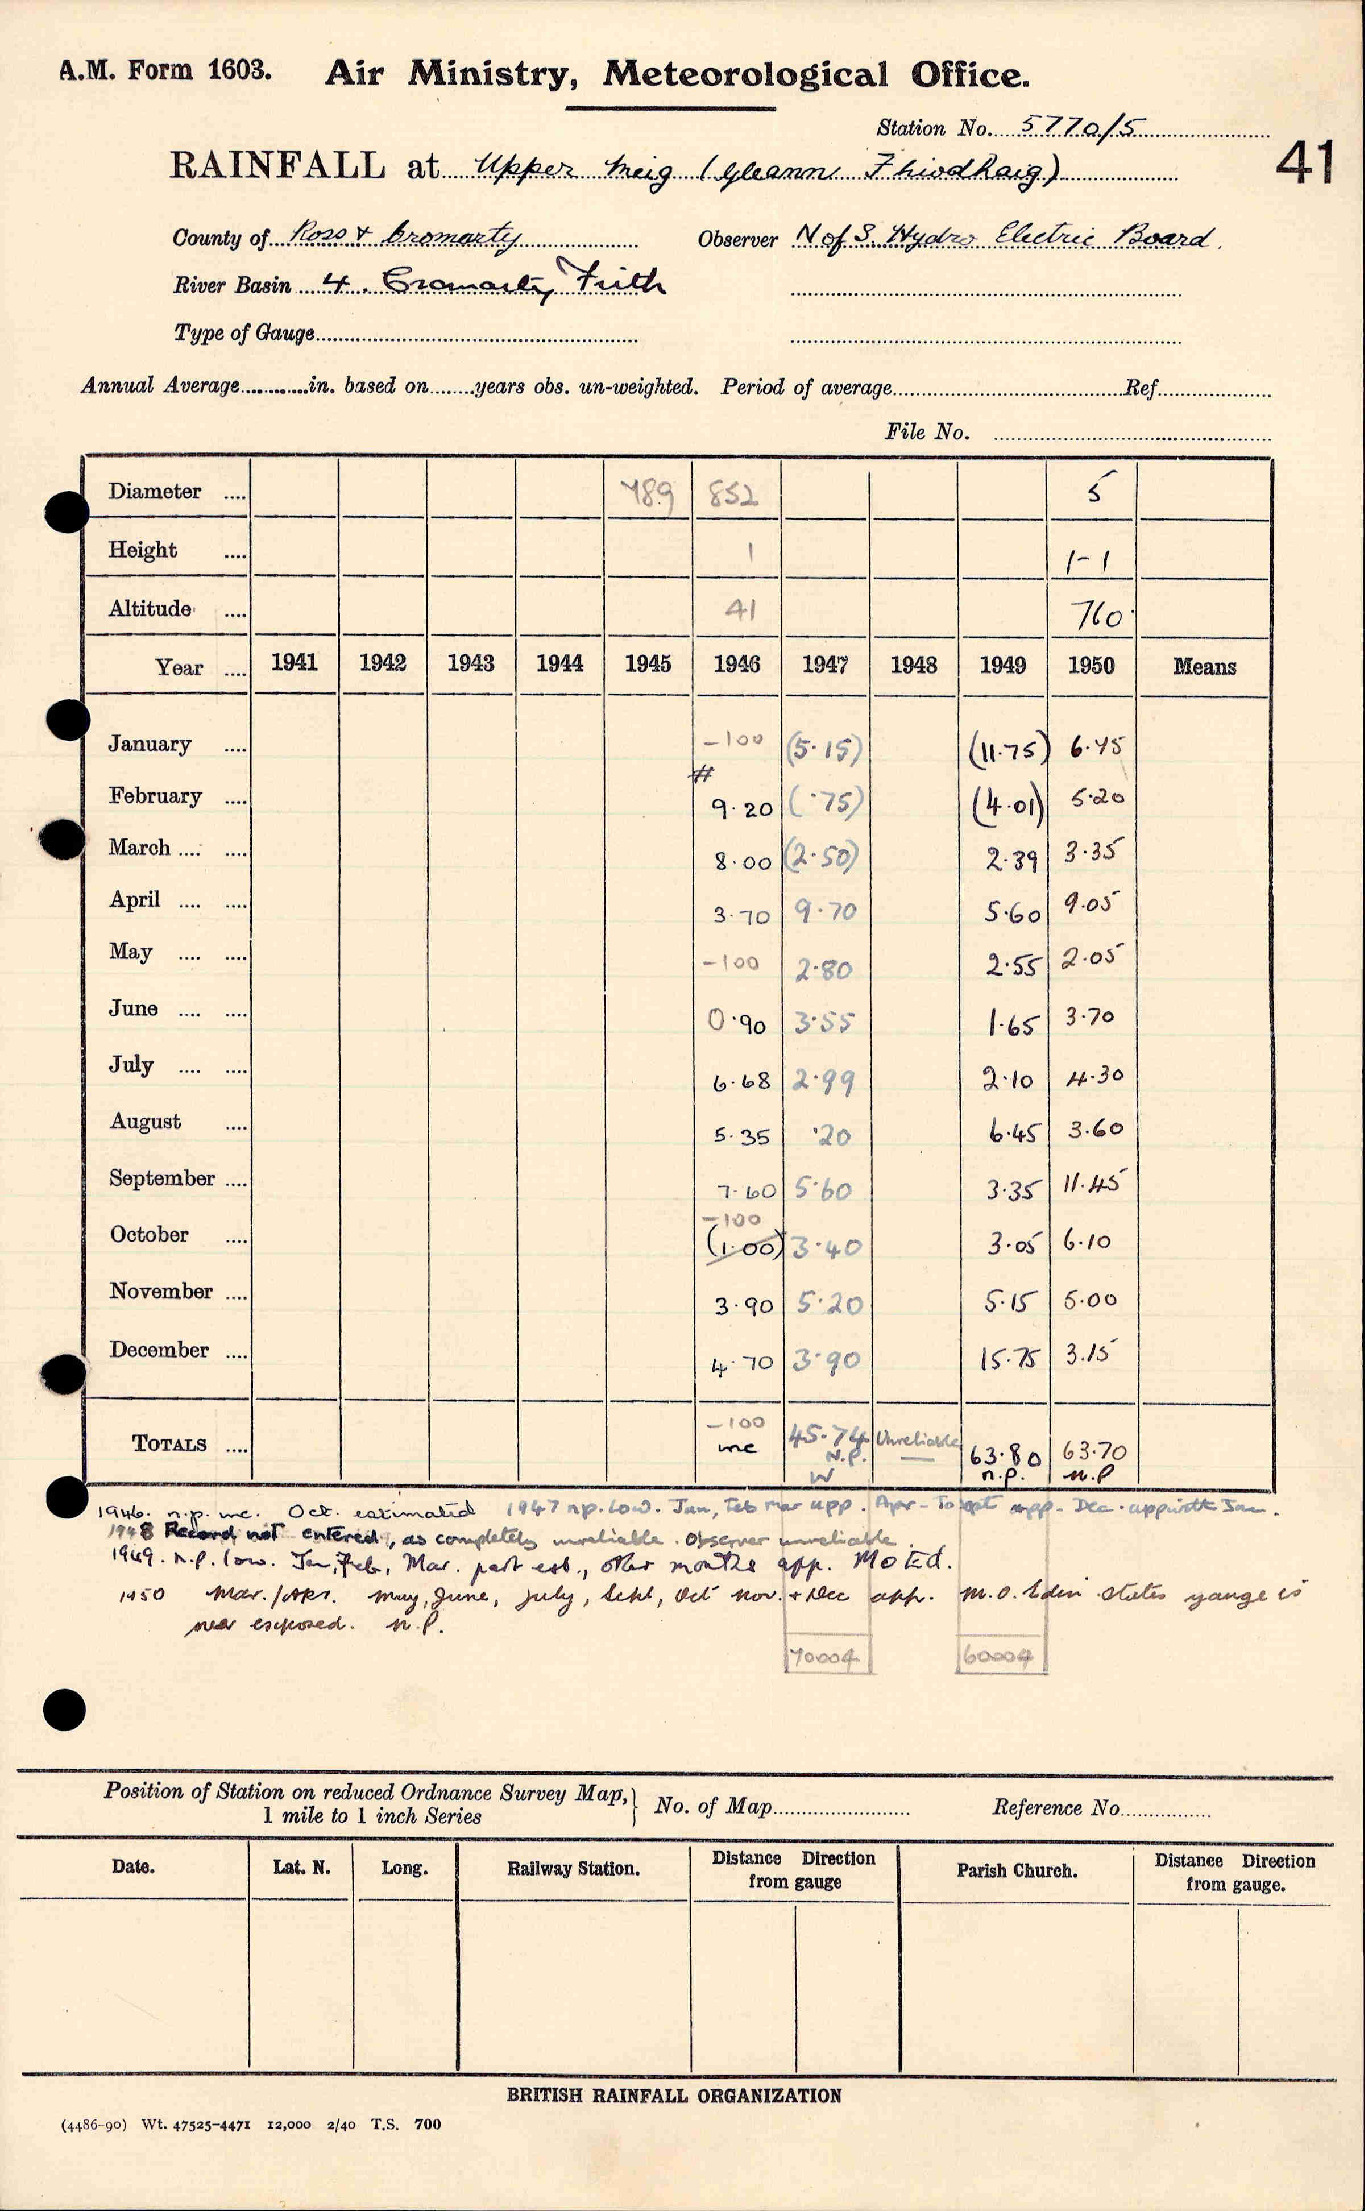 A.M. Form 1603. Air Ministry, Meteorological Office.
Station No. 5770/5
41
RAINFALL at Upper Meig (Gleann Fhiodhaig)
County of Ross & Cromarty Observer N of S. Hydro Electric Board.
River Basin 4. Cromarty Firth
Type of Gauge
Annual Average in. based on years obs. un-weighted. Period of average Ref.
File No.
Diameter 789 852 5
Height 1 1-1
Altitude 41 760
Year 1941 1942 1943 1944 1945 1946 1947 1948 1949 1950 Means
January -100 (5.15) (11.75) 6.45
February # 9.20 (.75) (4.01) 5.20
March 8.00 (2.50) 2.39 3.35
April 3.70 9.70 5.60 9.05
May -100 2.80 2.55 2.05
June 0.90 3.55 1.65 3.70
July 6.68 2.99 2.10 4.30
August 5.35 .20 6.45 3.60
September 7.60 5.60 3.35 11.45
-100
October (1.00) 3.40 3.05 6.10
November 3.90 5.20 5.15 5.00
December 4.70 3.90 15.75 3.15
-100
TOTALS inc 45.74 Unreliable 63.80 63.70
N.P. n.p. n.P
W
1946. n.p. inc. Oct. estimated 1947 n.p. low. Jan, Feb Mar app. Apr - To Sept app. Dec. app with Jan.
1948 Record not entered, as completely unreliable. Observer unreliable.
1949. n.p. low. Jan, Feb, Mar. part est., other months app. MO Ed.
1950 Mar./Apr. May, June, July, Sept, Oct Nov. + Dec app. M.O. Edin states gauge is
over exposed. n.P.
70004 60004
Position of Station on reduced Ordnance Survey Map, 1 mile to 1 inch Series } No. of Map Reference No.
Date. Lat. N. Long. Railway Station. Distance Direction from gauge Parish Church. Distance Direction from gauge.
BRITISH RAINFALL ORGANIZATION
(4486-90) Wt. 47525-4471 12,000 2/40 T.S. 700